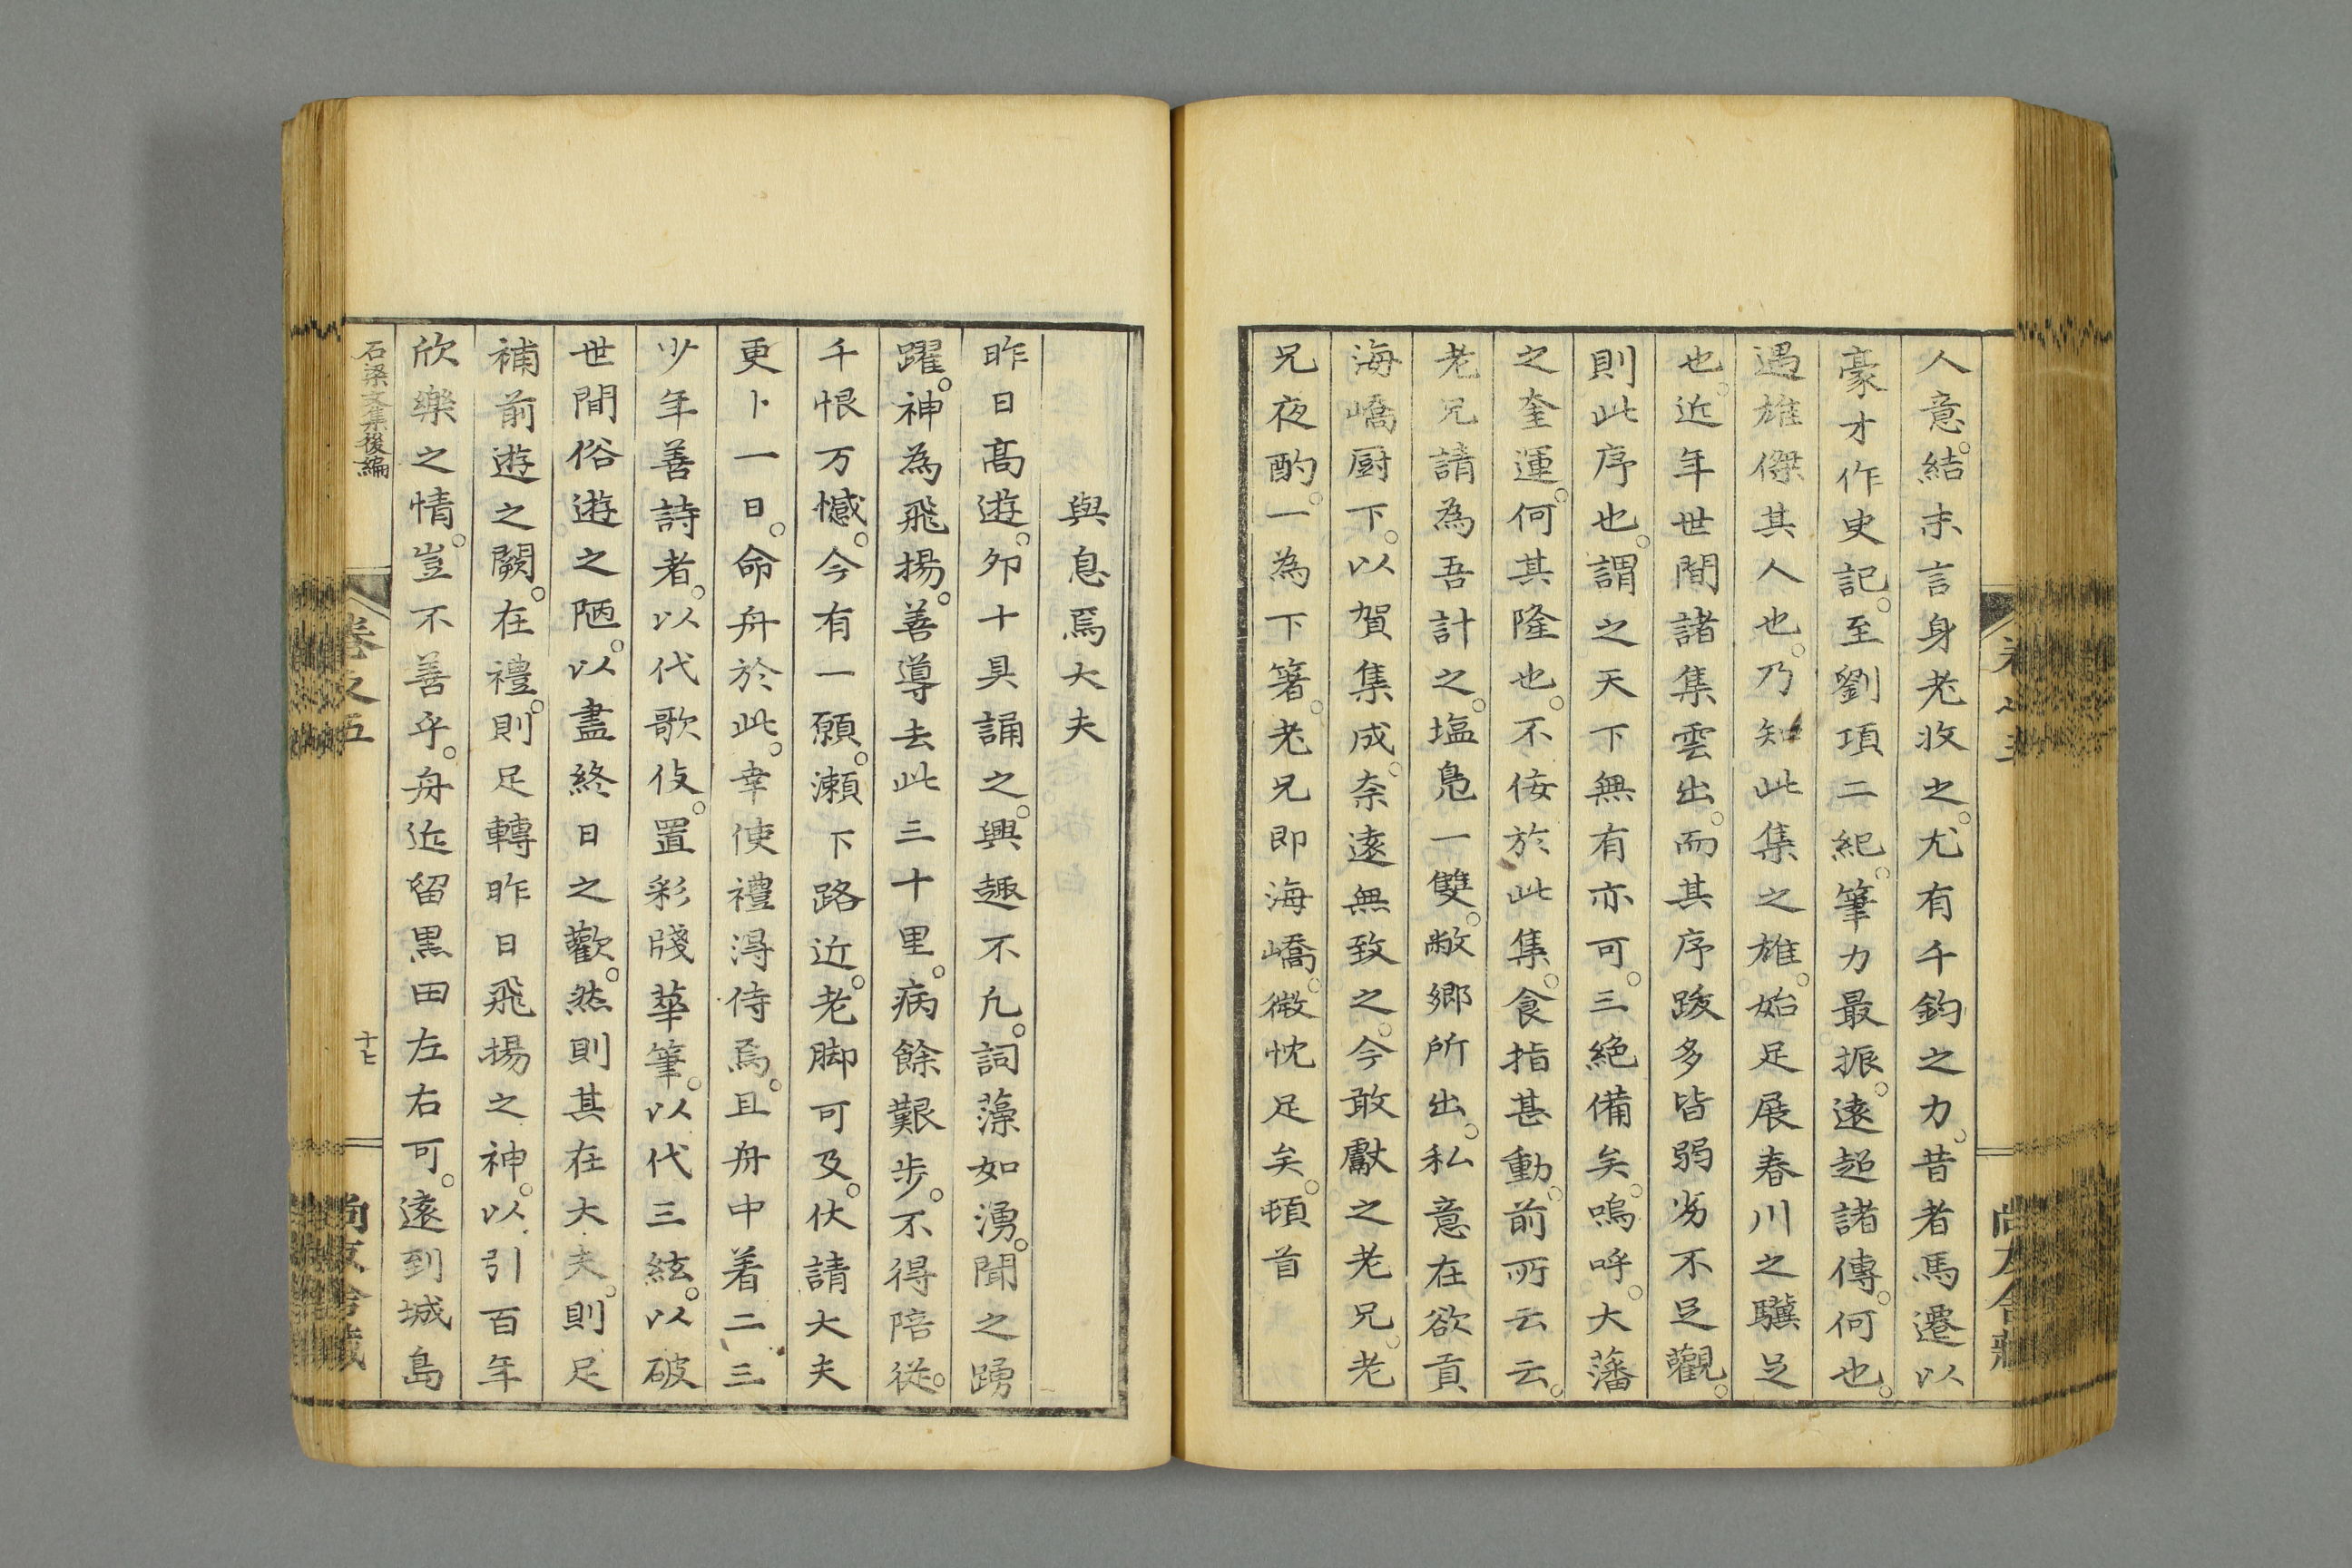 人意。結末言身老收之。尤有千鈞之力。昔者馬遷以
豪才作史記。至劉項二紀。筆力最振。遠超諸傳。何也。
遇雄傑其人也。乃知此集之雄。始足展春川之驥足
也。近年世間諸集雲出。而其序跋多皆弱劣不足觀。
則此序也。謂之天下無有亦可。三絕備矣。嗚呼。大藩
之奎運。何其隆也。不侫於此集。食指甚動。前所云云。
老兄請為吾計之。塩鳬一雙。敝鄉所出。私意在欲貢
海嶠厨下。以賀集成。奈遠無致之。今敢獻之老兄。老
兄夜酌。一為下箸。老兄即海嶠。微忱足矣。頓首
與息焉大夫
昨日高遊。夘十具誦之。興趣不凢。詞藻如湧。聞之踴
躍。神為飛揚。善導去此三十里。病餘艱步。不得陪從。
千恨万憾。今有一願。瀬下路近。老脚可及。伏請大夫
更卜一日。命舟於此。幸使禮淂侍焉。且舟中着二三
少年善詩者。以代歌伎。置彩牋華筆。以代三絃。以破
世間俗遊之陋。以盡終日之歡。然則其在大夫。則足
補前遊之闕。在禮。則足轉昨日飛揚之神。以引百年
欣樂之情。豈不善乎。舟近留黒田左右可。遠到城島
石梁文集後編
卷之五
十七
尚友舍藏